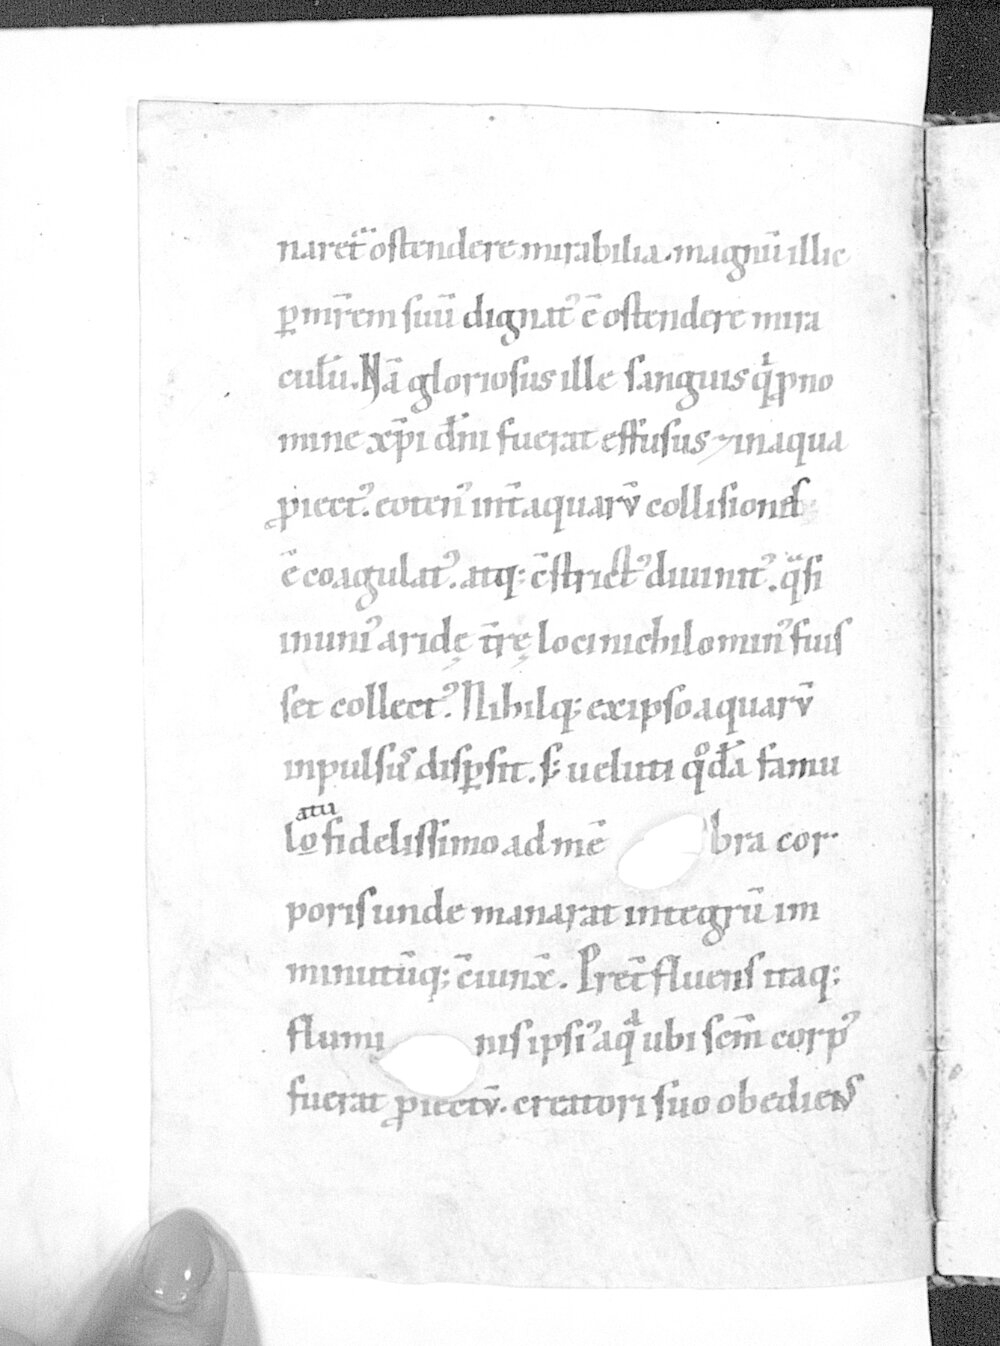 naretᷓ ostendere mirabilia. magnū illic
ꝑ mr̄em suū dignatꝰ ē ostendere mira
cul̄u. Nā gloriosus ille sanguis qͥ ꝓ no
mine xp̄i dn̄i fuerat effusus ⁊ in aqua
ꝓiectꝰ. eotenꝰ int̄ aquarū collisiones
ē coagulatꝰ. atq; c̄strictꝰ diuinitꝰ. qᷓsi
in uniꝰ aridę tr̄ę loci nichilominꝰ fuis
set collectꝰ. Nihilq; ex ipso aquarū
inpulsus disꝑsit. s; ueluti qͦdā famu
lo atu fidelissimo ad mē bra cor
poris unde manarat integrū im
minutūq; c̄iunx̄. Pret̄fluens itaq;
flumi nis ipsiꝰ aqͣ ubi sc̄m corpꝰ
fuerat ꝓiectū. creatori suo obediens